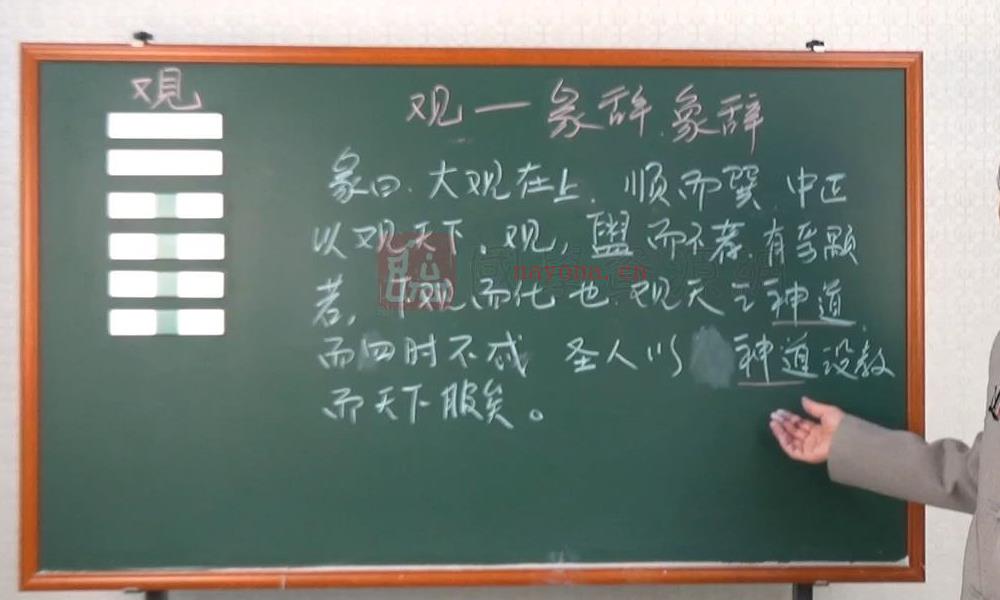 观
观一彖辞.象辞
彖曰.大观在上.顺而巽.中正
以观天下.观,盥而不荐.有孚颙
若,下观而化也 观天之神道.
而四时不忒 圣人以 神道设教
而天下服矣。
nayona.cn